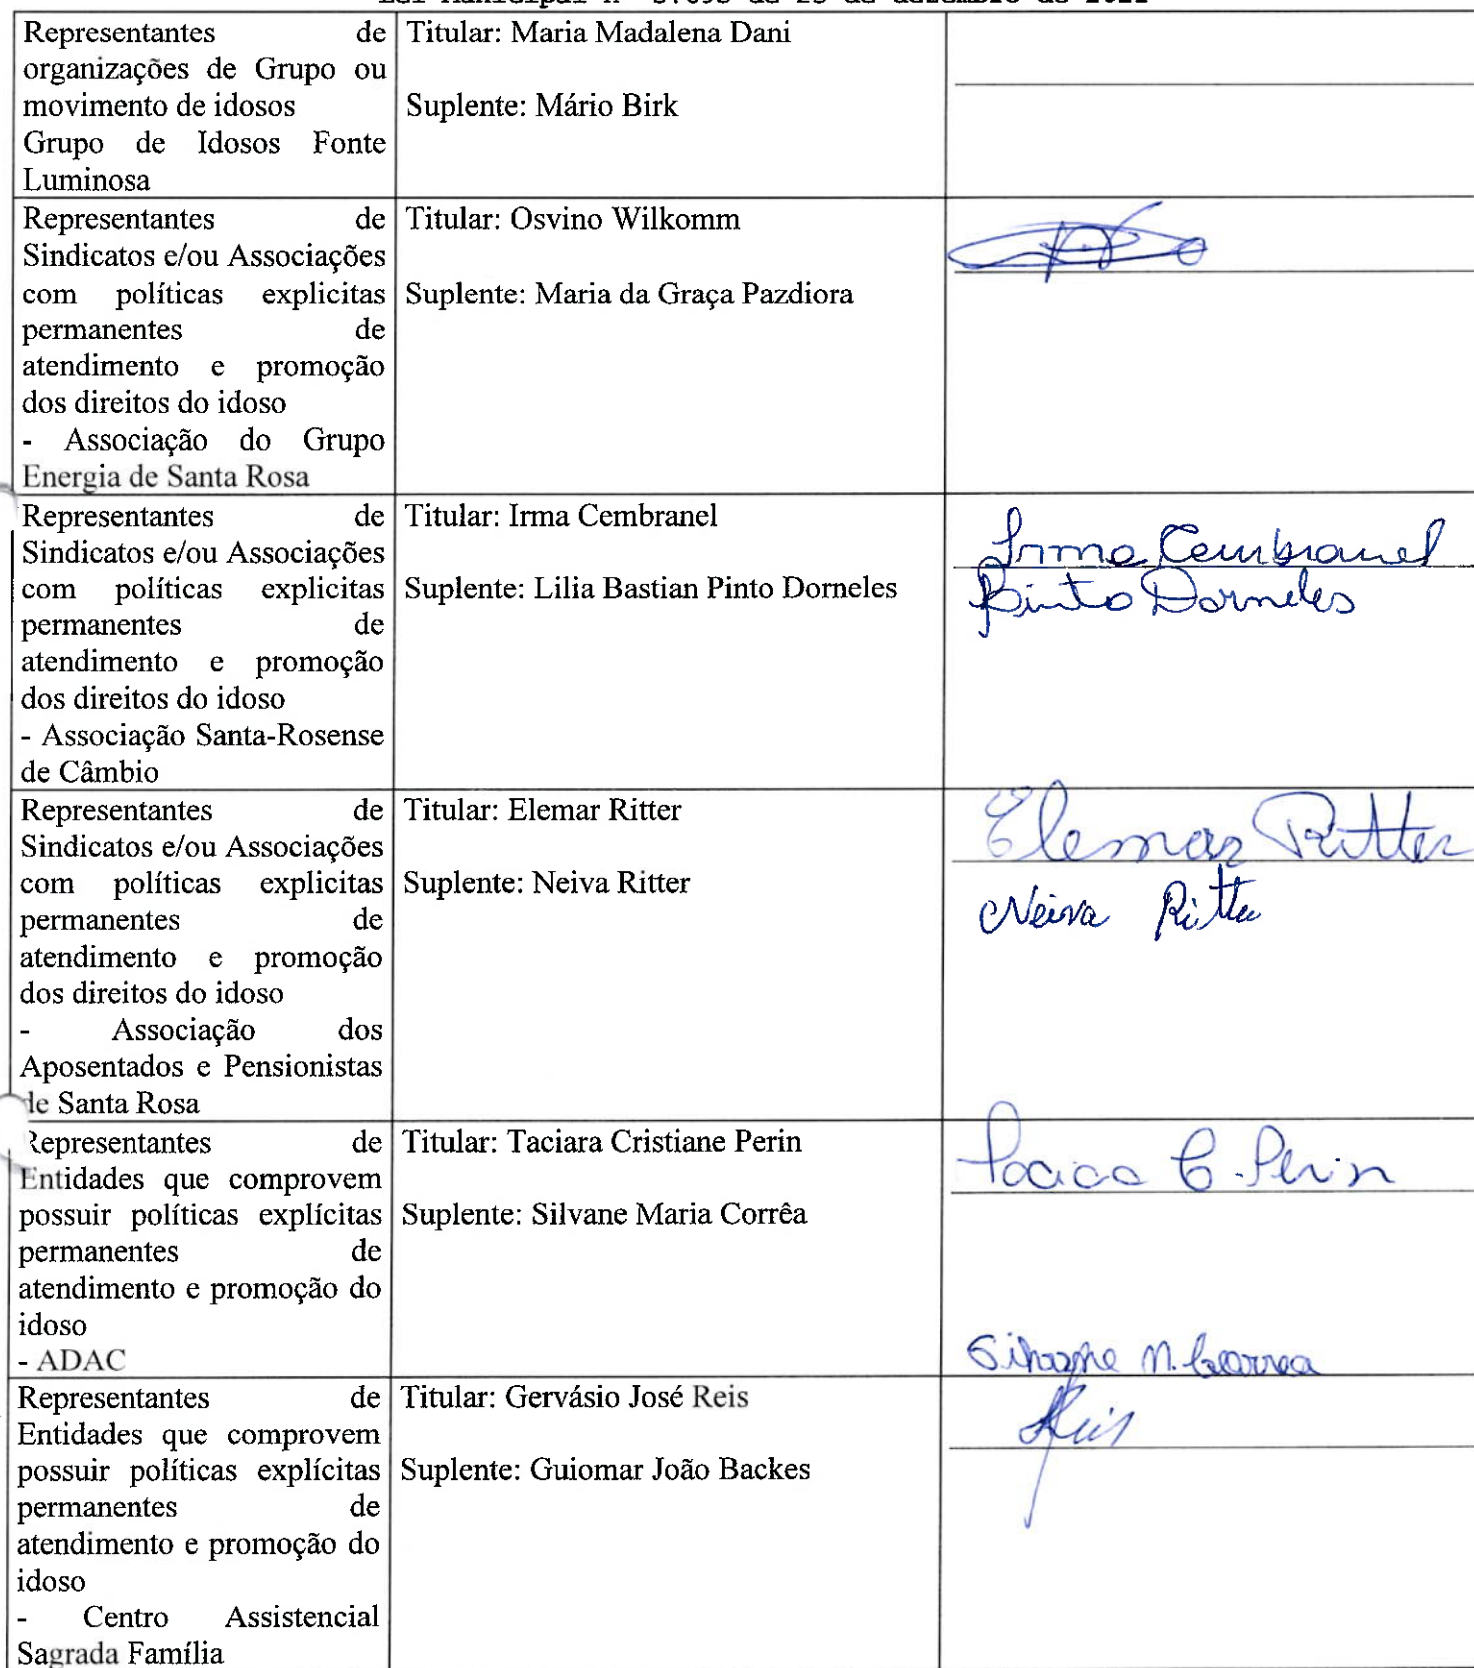 Representantes de
organizações de Grupo ou
movimento de idosos
Grupo de Idosos Fonte
Luminosa
Titular: Maria Madalena Dani
Suplente: Mário Birk
Representantes de
Sindicatos e/ou Associações
com políticas explicitas
permanentes de
atendimento e promoção
dos direitos do idoso
- Associação do Grupo
Energia de Santa Rosa
Titular: Osvino Wilkomm
Suplente: Maria da Graça Pazdiora
Representantes de
Sindicatos e/ou Associações
com políticas explicitas
permanentes de
atendimento e promoção
dos direitos do idoso
- Associação Santa-Rosense
de Câmbio
Titular: Irma Cembranel
Suplente: Lilia Bastian Pinto Dorneles
Irma Cembranel
Pinto Dorneles
Representantes de
Sindicatos e/ou Associações
com políticas explicitas
permanentes de
atendimento e promoção
dos direitos do idoso
- Associação dos
Aposentados e Pensionistas
de Santa Rosa
Titular: Elemar Ritter
Suplente: Neiva Ritter
Elemar Ritter
Neiva Ritter
Representantes de
Entidades que comprovem
possuir políticas explícitas
permanentes de
atendimento e promoção do
idoso
- ADAC
Titular: Taciara Cristiane Perin
Suplente: Silvane Maria Corrêa
C. Perin
M. Correa
Representantes de
Entidades que comprovem
possuir políticas explícitas
permanentes de
atendimento e promoção do
idoso
- Centro Assistencial
Sagrada Família
Titular: Gervásio José Reis
Suplente: Guiomar João Backes
Reis